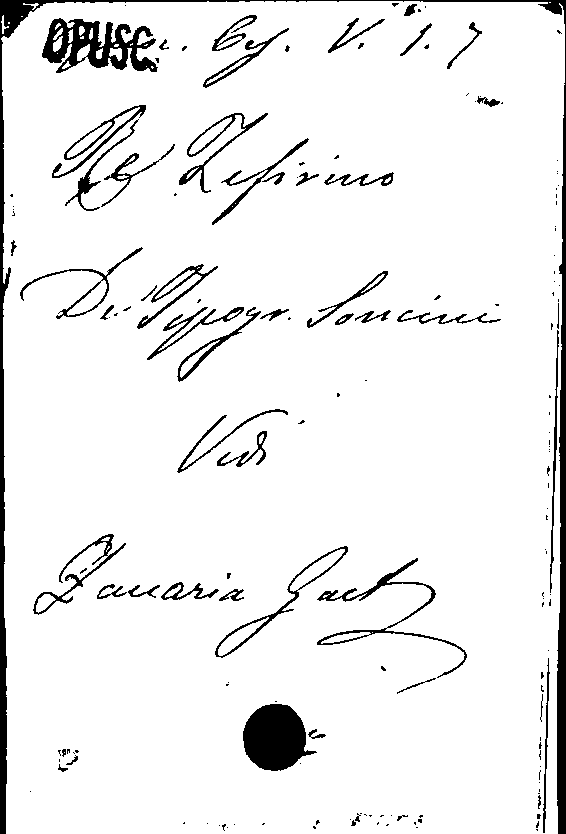 OPUSC. V. 1. 7
Re Zefirino
De' Tipogr. Soncini
Vedi
Zaccaria Gaet.